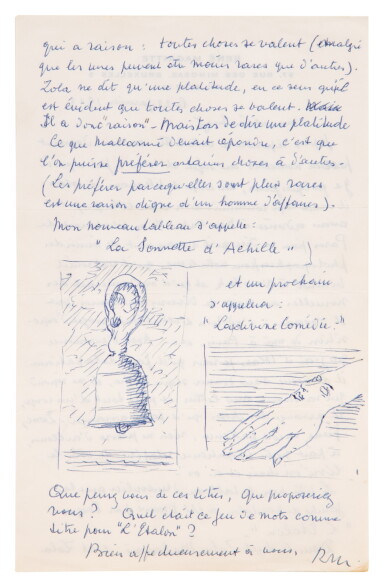 qui a raison : toutes choses se valent (malgré
que les unes peuvent être moins rares que d'autres).
Zola ne dit qu'une platitude, en ce sens qu'il
est évident que toutes choses se valent.
Il a donc "raison" - de dire une platitude
Ce que Mallarmé devait répondre, c'est que
l'on puisse préférer certaines choses à d'autres.
(Les préférer parce qu'elles sont plus rares
est une raison digne d'un homme d'affaires).
Mon nouveau tableau s'appelle :
"La Sonnette d'Achille"
et un prochain
s'appellera :
"Lasdivine Comédie."
Que pensez vous de ces titres, que proposeriez
vous ? Quel était ce jeu de mots comme
titre pour "L'Etalon" ?
Bien affectueusement à vous,
RM.